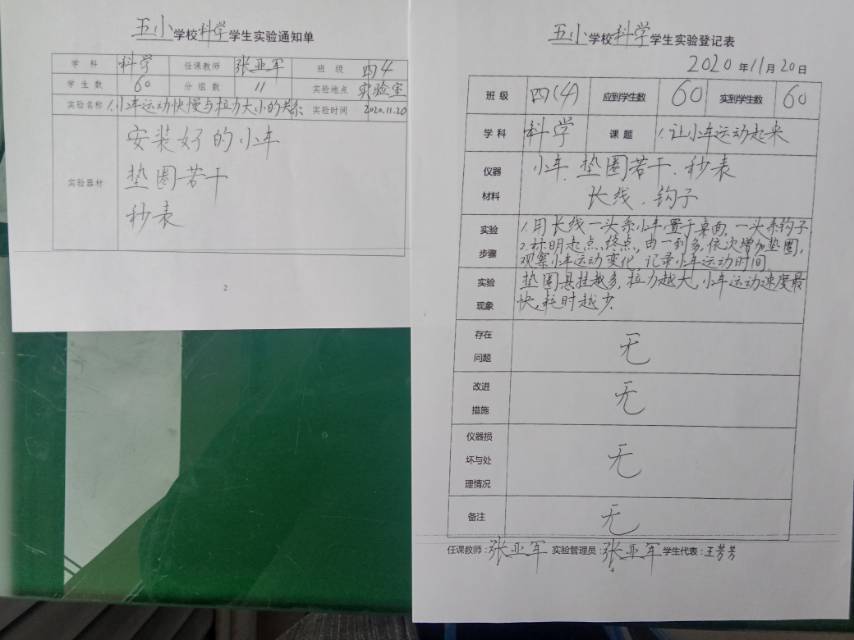 五小学校科学学生实验通知单
学科 科学 任课教师 张亚军 班级 四4
学生数 60 分组数 11 实验地点 实验室
实验名称 1.小车运动快慢与拉力大小的关系 实验时间 2020.11.20
实验器材
安装好的小车
垫圈若干
秒表
2
五小学校科学学生实验登记表
2020年11月20日
班级 四(4) 应到学生数 60 实到学生数 60
学科 科学 课题 1.让小车运动起来
仪器材料
小车、垫圈若干、秒表
长线、钩子
实验步骤
1.用长线一头系小车置于桌面,一头系钩子
2.计明起点、终点,由一到多,依次增加垫圈,
观察小车运动变化,记录小车运动时间
实验现象
垫圈悬挂越多,拉力越大,小车运动速度最
快,耗时越少.
存在问题 无
改进措施 无
仪器损坏与处理情况 无
备注 无
任课教师:张亚军 实验管理员:张亚军 学生代表:王芳芳